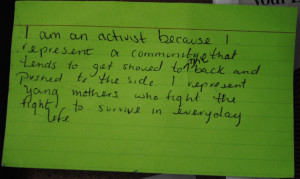 I am an activist because I
represent a community that
tends to get shoved to the back and
pushed to the side. I represent
yang mothers who fight the
fight, to survive in everyday
life